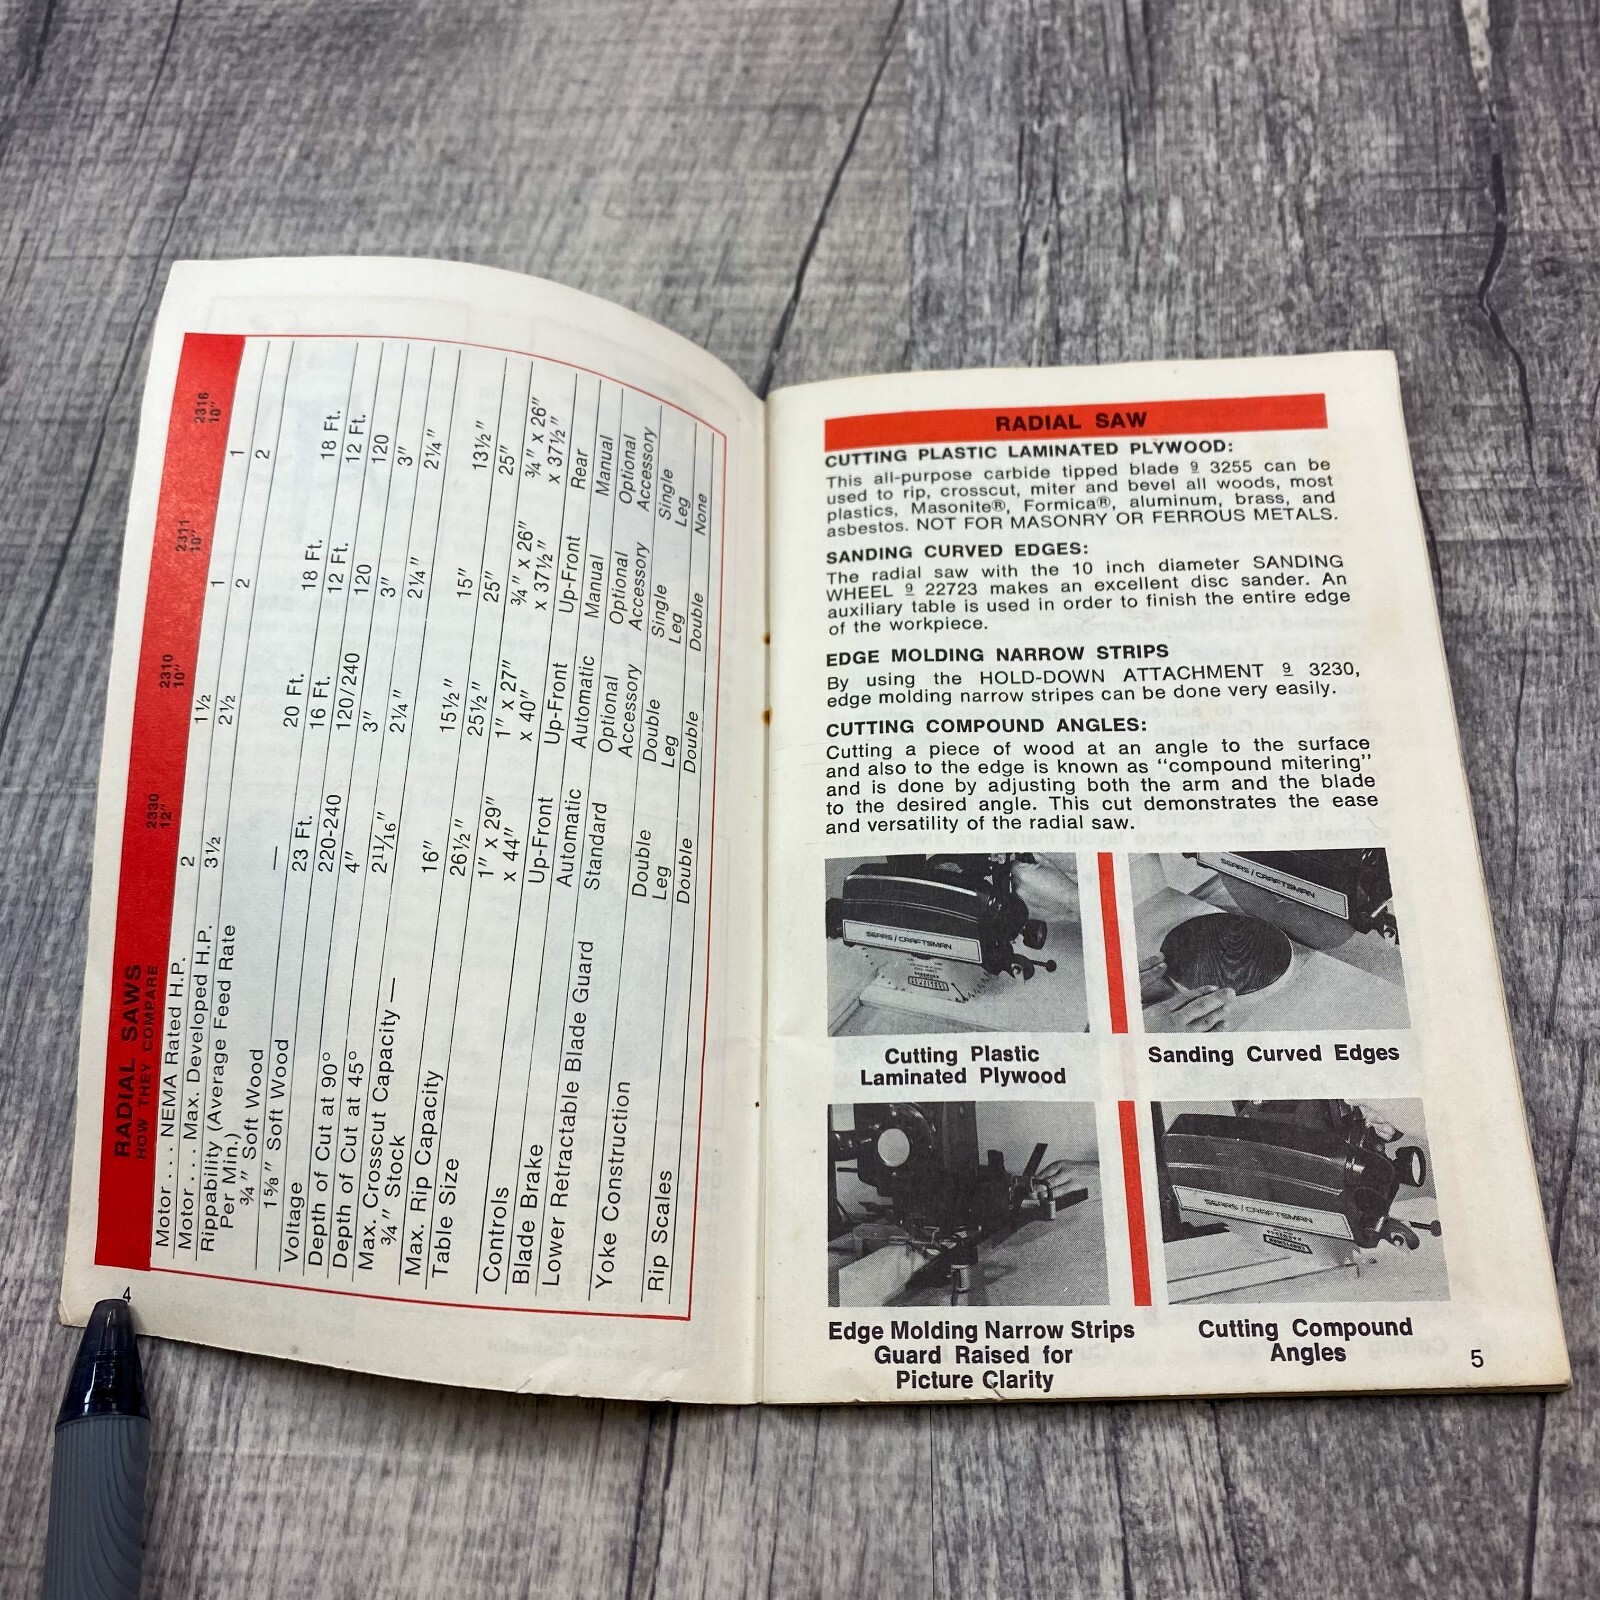 RADIAL SAWS
HOW THEY COMPARE
2330 2310 2311 2316
12" 10" 10" 10"
Motor .... NEMA Rated H.P. 2 1½ 1 1
Motor ... Max. Developed H.P. 3½ 2½ 2 2
Rippability (Average Feed Rate
Per Min.)
¾" Soft Wood — 20 Ft. 18 Ft. 18 Ft.
1⅝" Soft Wood 23 Ft. 16 Ft. 12 Ft. 12 Ft.
Voltage 220-240 120/240 120 120
Depth of Cut at 90° 4" 3" 3" 3"
Depth of Cut at 45° 2 11/16" 2¼" 2¼" 2¼"
Max. Crosscut Capacity —
¾" Stock 16" 15½" 15" 13½"
Max. Rip Capacity 26½" 25½" 25" 25"
Table Size 1" x 29" 1" x 27" ¾" x 26" ¾" x 26"
x 44" x 40" x 37½" x 37½"
Controls Up-Front Up-Front Up-Front Rear
Blade Brake Automatic Automatic Manual Manual
Lower Retractable Blade Guard Standard Optional Optional Optional
Accessory Accessory Accessory
Yoke Construction Double Double Single Single
Leg Leg Leg Leg
Rip Scales Double Double Double None
4
RADIAL SAW
CUTTING PLASTIC LAMINATED PLYWOOD:
This all-purpose carbide tipped blade 9 3255 can be
used to rip, crosscut, miter and bevel all woods, most
plastics, Masonite®, Formica®, aluminum, brass, and
asbestos. NOT FOR MASONRY OR FERROUS METALS.
SANDING CURVED EDGES:
The radial saw with the 10 inch diameter SANDING
WHEEL 9 22723 makes an excellent disc sander. An
auxiliary table is used in order to finish the entire edge
of the workpiece.
EDGE MOLDING NARROW STRIPS
By using the HOLD-DOWN ATTACHMENT 9 3230,
edge molding narrow stripes can be done very easily.
CUTTING COMPOUND ANGLES:
Cutting a piece of wood at an angle to the surface
and also to the edge is known as "compound mitering"
and is done by adjusting both the arm and the blade
to the desired angle. This cut demonstrates the ease
and versatility of the radial saw.
SEARS / CRAFTSMAN
SEARS / CRAFTSMAN
Cutting Plastic
Laminated Plywood
Sanding Curved Edges
SEARS / CRAFTSMAN
Edge Molding Narrow Strips
Guard Raised for
Picture Clarity
Cutting Compound
Angles
5